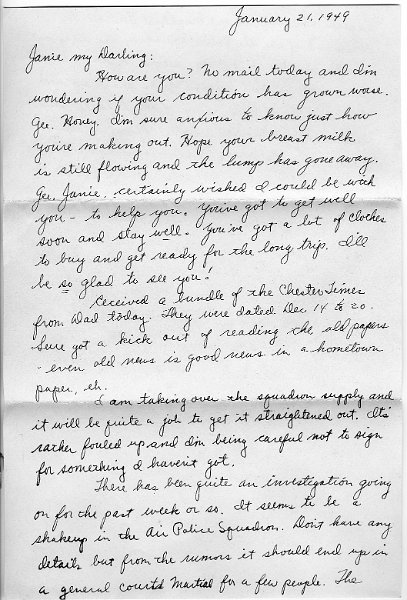 January 21, 1949
Janie my Darling:
How are you? No mail today and I'm
wondering if your condition has grown worse.
Gee, Honey, I'm sure anxious to know just how
you're making out. Hope your breast milk
is still flowing and the lump has gone away.
Gee, Janie, certainly wished I could be with
you - to help you. You've got to get well
soon and stay well. You've got a lot of clothes
to buy and get ready for the long trip. I'll
be so glad to see you!
Received a bundle of the Chester Times
from Dad today. They were dated Dec 14 to 20.
Sure got a kick out of reading the old papers
- even old news is good news in a hometown
paper, eh.
I am taking over the squadron supply and
it will be quite a job to get it straightened out. It's
rather fouled up and I'm being careful not to sign
for something I haven't got.
There has been quite an investigation going
on for the past week or so. It seems to be a
shakeup in the Air Police Squadron. Don't have any
details but from the rumors it should end up in
a general courts martial for a few people. The